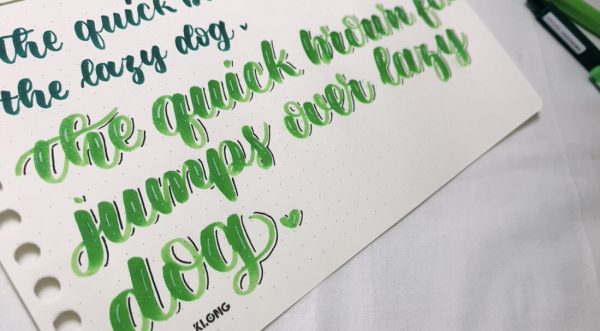 the quick
the lazy dog.
the quick brown
jumps over lazy
dog.
KI.ONG